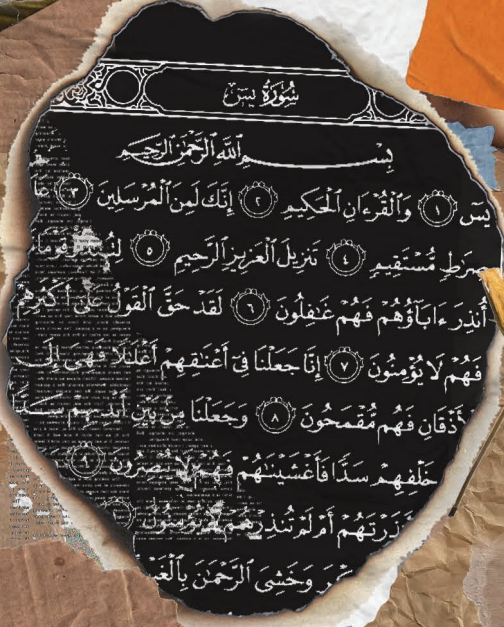 سُورَةُ يسٓ
بِسْمِ ٱللَّهِ ٱلرَّحْمَٰنِ ٱلرَّحِيمِ
يسٓ ١ وَٱلْقُرْءَانِ ٱلْحَكِيمِ ٢ إِنَّكَ لَمِنَ ٱلْمُرْسَلِينَ ٣
صِرَٰطٍ مُّسْتَقِيمٍ ٤ تَنزِيلَ ٱلْعَزِيزِ ٱلرَّحِيمِ ٥ قَوْمًا
أُنذِرَ ءَابَآؤُهُمْ فَهُمْ غَٰفِلُونَ ٦ لَقَدْ حَقَّ ٱلْقَوْلُ عَلَىٰٓ أَكْثَرِهِمْ
فَهُمْ لَا يُؤْمِنُونَ ٧ إِنَّا جَعَلْنَا فِىٓ أَعْنَٰقِهِمْ أَغْلَٰلًا فَهِىَ إِلَى
ٱلْأَذْقَانِ فَهُم مُّقْمَحُونَ ٨ وَجَعَلْنَا مِنۢ بَيْنِ أَيْدِيهِمْ سَدًّا
خَلْفِهِمْ سَدًّا فَأَغْشَيْنَٰهُمْ فَهُمْ لَا يُبْصِرُونَ ٩
أَمْ لَمْ تُنذِرْهُمْ لَا يُؤْمِنُونَ
وَخَشِىَ ٱلرَّحْمَٰنَ